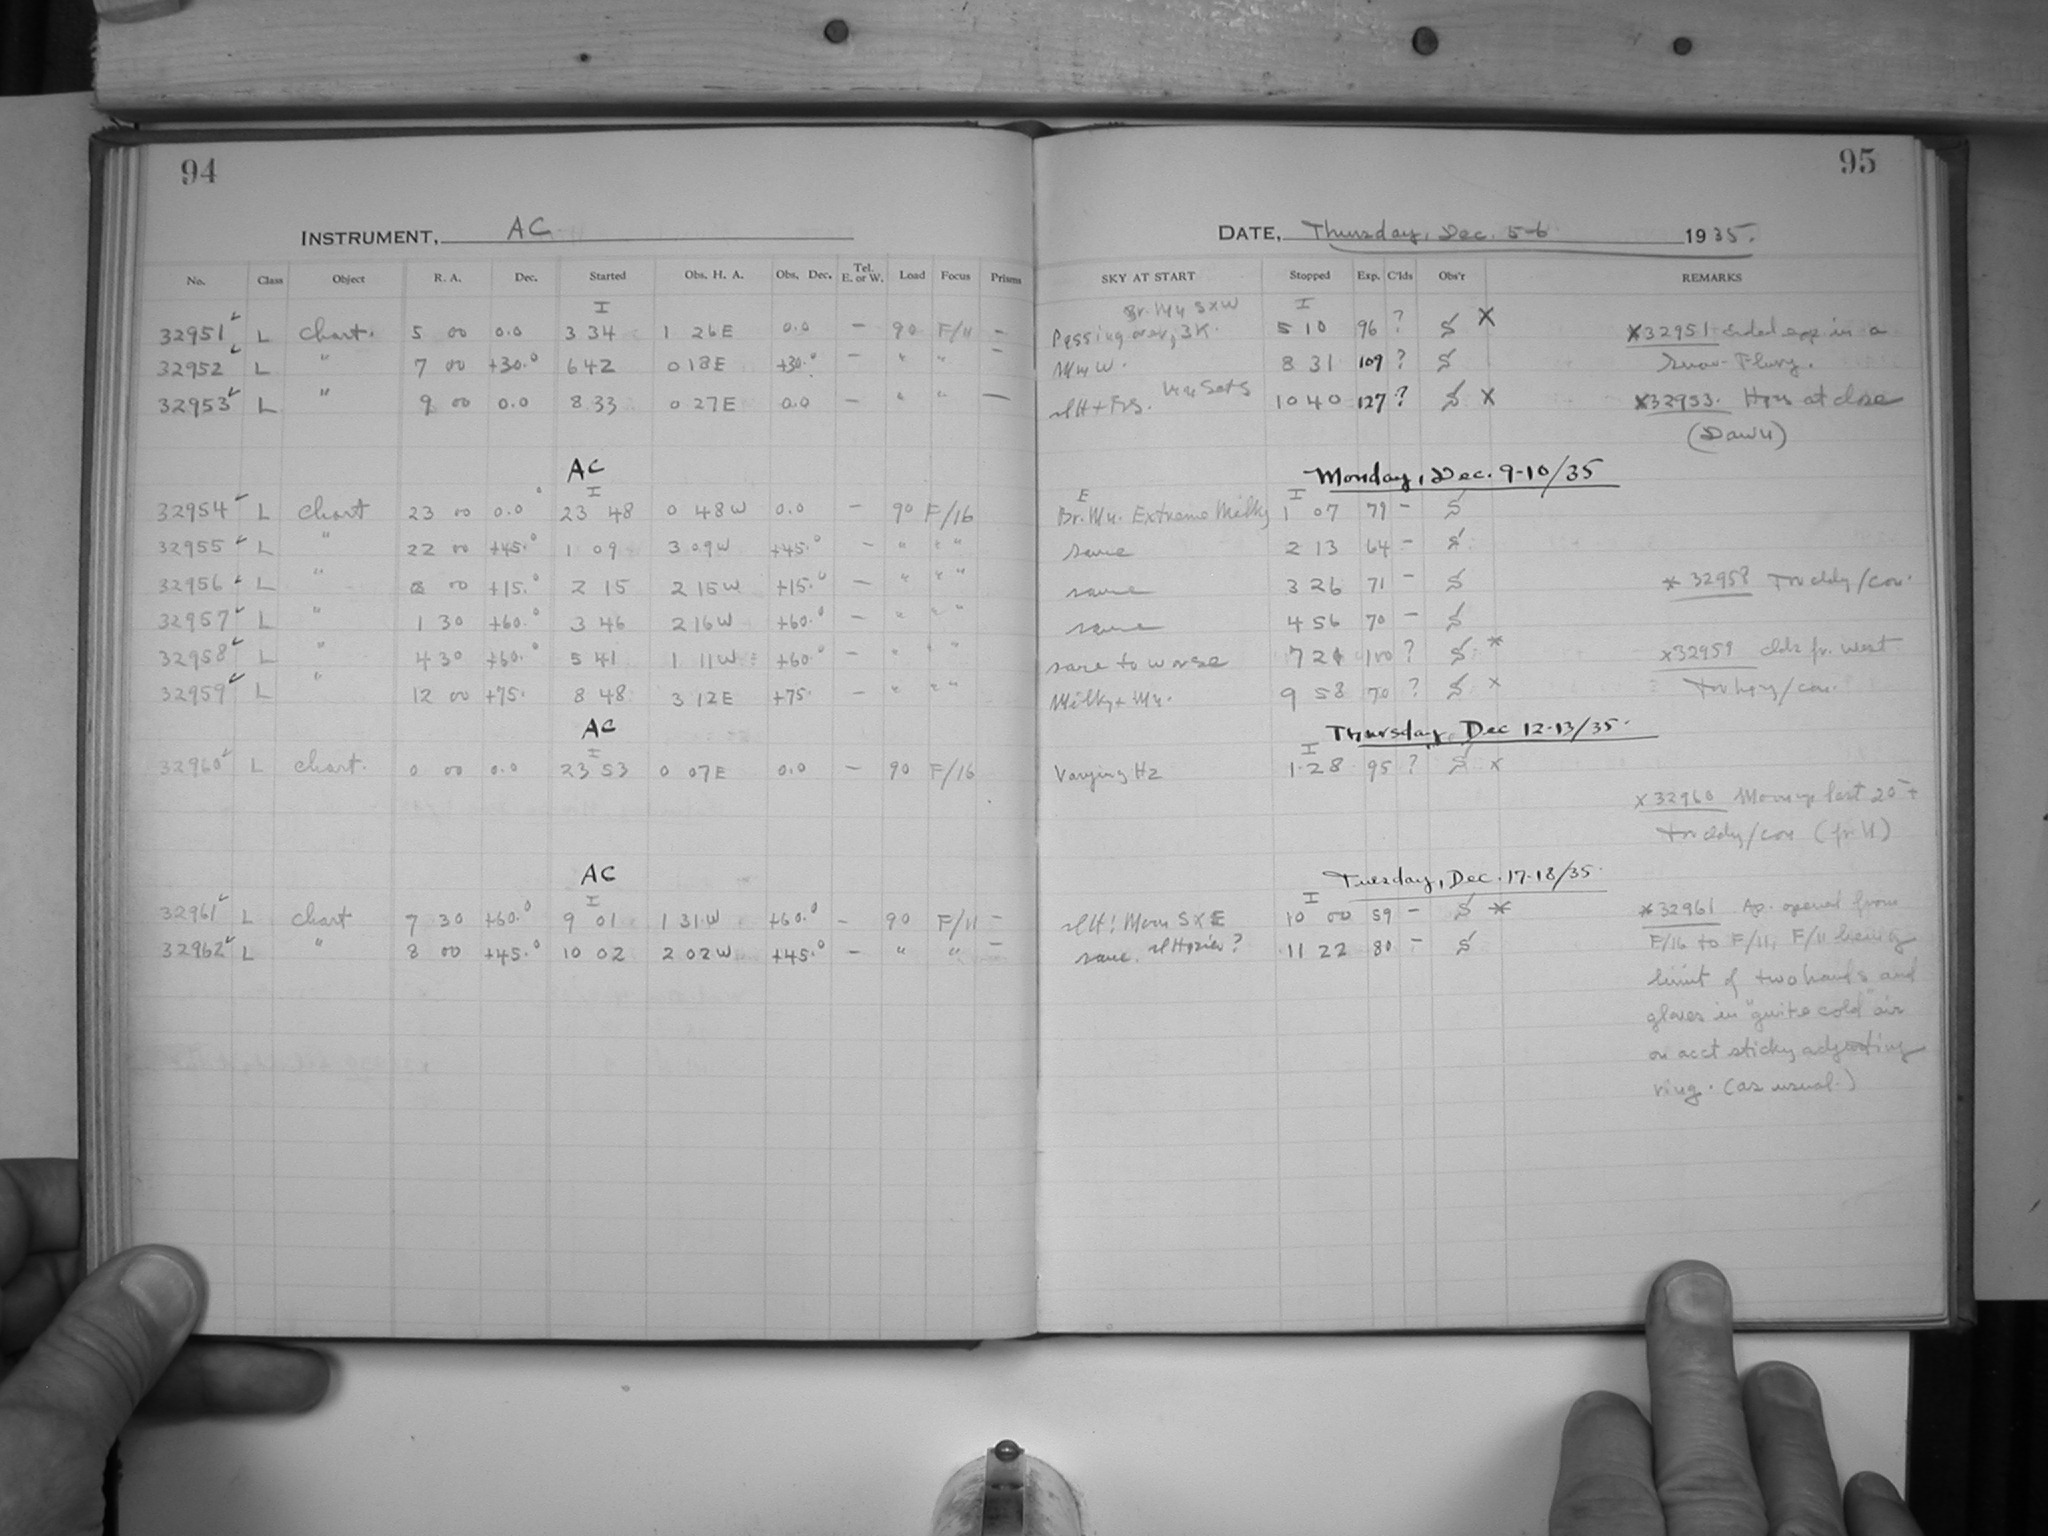 94
INSTRUMENT, AC
No. Class Object R. A. Dec. Started Obs. H. A. Obs. Dec. Tel. E. or W. Load Focus Prisms
I
32951 ✓ L Chart. 5 00 0.0 3 34 1 26E 0.0 – 90 F/11 –
32952 ✓ L " 7 00 +30.° 6 42 0 18E +30.° – " " –
32953 ✓ L " 9 00 0.0 8 33 0 27E 0.0 – " " –
AC
I
32954 ✓ L Chart 23 00 0.0° 23 48 0 48W 0.0 – 90 F/16
32955 ✓ L " 22 00 +45.° 1 09 3 09W +45.° – " " "
32956 ✓ L " 00 +15.° 2 15 2 15W +15.° – " " "
32957 ✓ L " 1 30 +60.° 3 46 2 16W +60.° – " " "
32958 ✓ L " 4 30 +60.° 5 41 1 11W +60° – " " "
32959 ✓ L " 12 00 +75. 8 48 3 12E +75. – " " "
AC
I
32960 ✓ L Chart. 0 00 0.0 23 53 0 07E 0.0 – 90 F/16
AC
I
32961 ✓ L Chart 7 30 +60.° 9 01 1 31W +60.° – 90 F/11 –
32962 ✓ L " 8 00 +45.° 10 02 2 02W +45.° – " " –
95
DATE, Thursday, Dec. 5-6 1935.
SKY AT START Stopped Exp. C'lds Obs'r REMARKS
Br. Mn SXW I
Passing over, 3K. 5 10 96 ? S X X32951 Ended exp. in a
Mn W. 8 31 109 ? S Snow-Flury.
Mn Sets
10 40 127 ? S X X32953. at close
(Dawn)
Monday, Dec. 9-10/35
E I
Br. Mn. Extreme Milky 1 07 79 – S
same 2 13 64 – S
same 3 26 71 – S * 32958
same 4 56 70 – S
same to worse 7 21 100 ? S * x32959 clds fr. west
Milky + Mn. 9 58 70 ? S x
Thursday, Dec 12-13/35.
I
Varying Hz 1 28 95 ? S x
x 32960 last 20
(fr. N)
Tuesday, Dec. 17-18/35.
I
Moon SXE 10 00 59 – S * *32961 Ap. opened from
same. ? 11 22 80 – S F/16 to F/11, F/11 being
limit of two hands and
gloves in "quite cold" air
on acct sticky adjusting
ring. (as usual.)